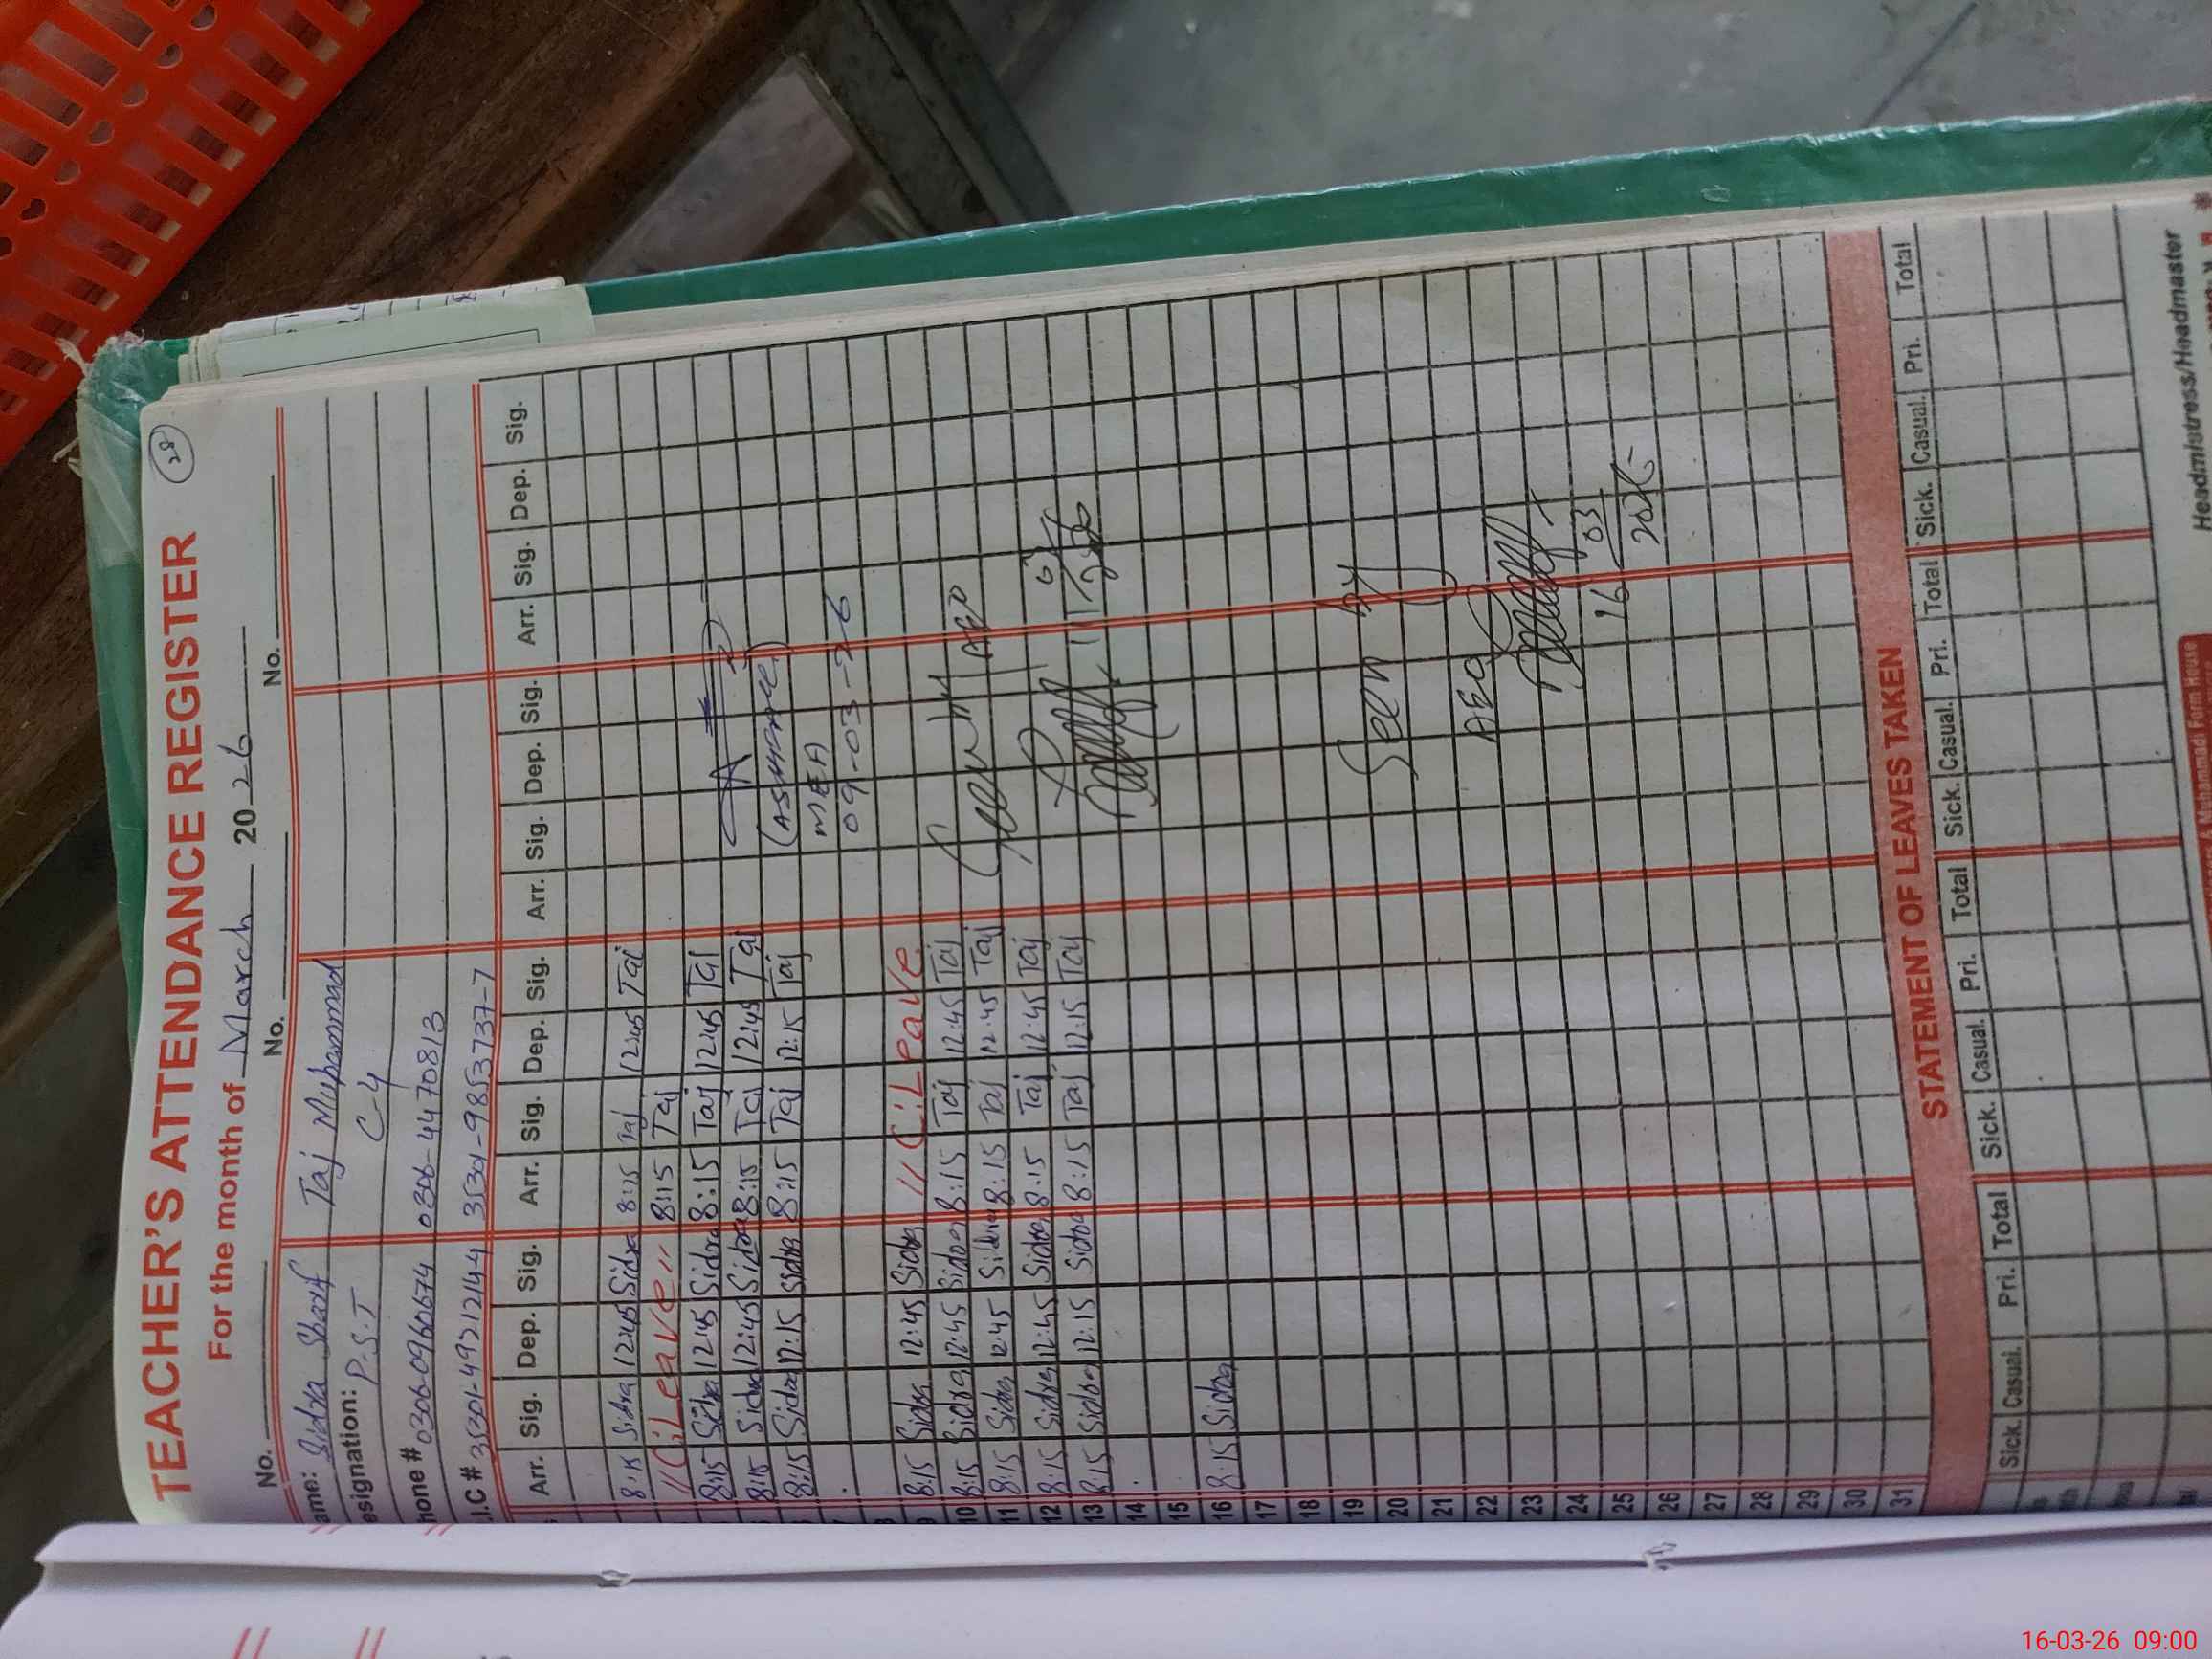 28
TEACHER'S ATTENDANCE REGISTER
For the month of March 20 26
No. No. No. No.
ame: Sidra Sharif Taj Muhammad
esignation: P.S.T C-4
hone # 0306-0960674 0306-4470813
.I.C # 35301-4921214-4 35301-9853737-7
Arr. Sig. Dep. Sig. Arr. Sig. Dep. Sig. Arr. Sig. Dep. Sig. Arr. Sig. Dep. Sig.
8:15 Sidra 12:45 Sidra 8:15 Taj 12:45 Taj
// C.Leave // 8:15 Taj
8:15 Sidra 12:45 Sidra 8:15 Taj 12:45 Taj
8:15 Sidra 12:45 Sidra 8:15 Taj 12:45 Taj
8:15 Sidra 12:15 Sidra 8:15 Taj 12:15 Taj
MEA
09-03-26
9 8:15 Sidra 12:45 Sidra // C.Leave
10 8:15 Sidra 12:45 Sidra 8:15 Taj 12:45 Taj
11 8:15 Sidra 12:45 Sidra 8:15 Taj 12:45 Taj
12 8:15 Sidra 12:45 Sidra 8:15 Taj 12:45 Taj
13 8:15 Sidra 12:15 Sidra 8:15 Taj 12:15 Taj
AEO
14
15
16 8:15 Sidra
17
18
19
20 Seen by
21
22 AEO
23
24
25 16 03 2026
26
27
28
29
30
31
STATEMENT OF LEAVES TAKEN
Sick. Casual. Pri. Total Sick. Casual. Pri. Total Sick. Casual. Pri. Total Sick. Casual. Pri. Total
Headmistress/Headmaster
Muhammadi Form House
16-03-26 09:00